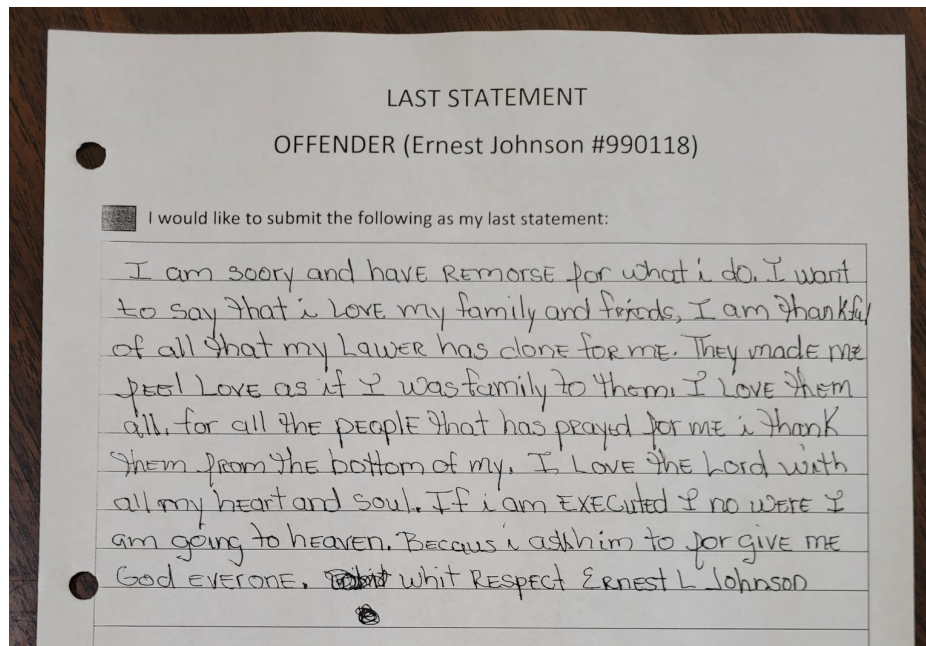 LAST STATEMENT
OFFENDER (Ernest Johnson #990118)
I would like to submit the following as my last statement:
I am soory and have REMORSE for what i do. I want
to say that i LOVE my family and friends, I am thankful
of all that my LAWER has done for me. They made me
feel LOVE as if I was family to them. I LOVE them
all. for all the PEOPLE that has prayed for me i thank
them from the bottom of my. I LOVE the Lord with
all my heart and soul. If i am EXECUTED I no WERE I
am going to heaven. Becaus i ask him to forgive me
God EVERONE. whit RESPECT ERNEST L Johnson